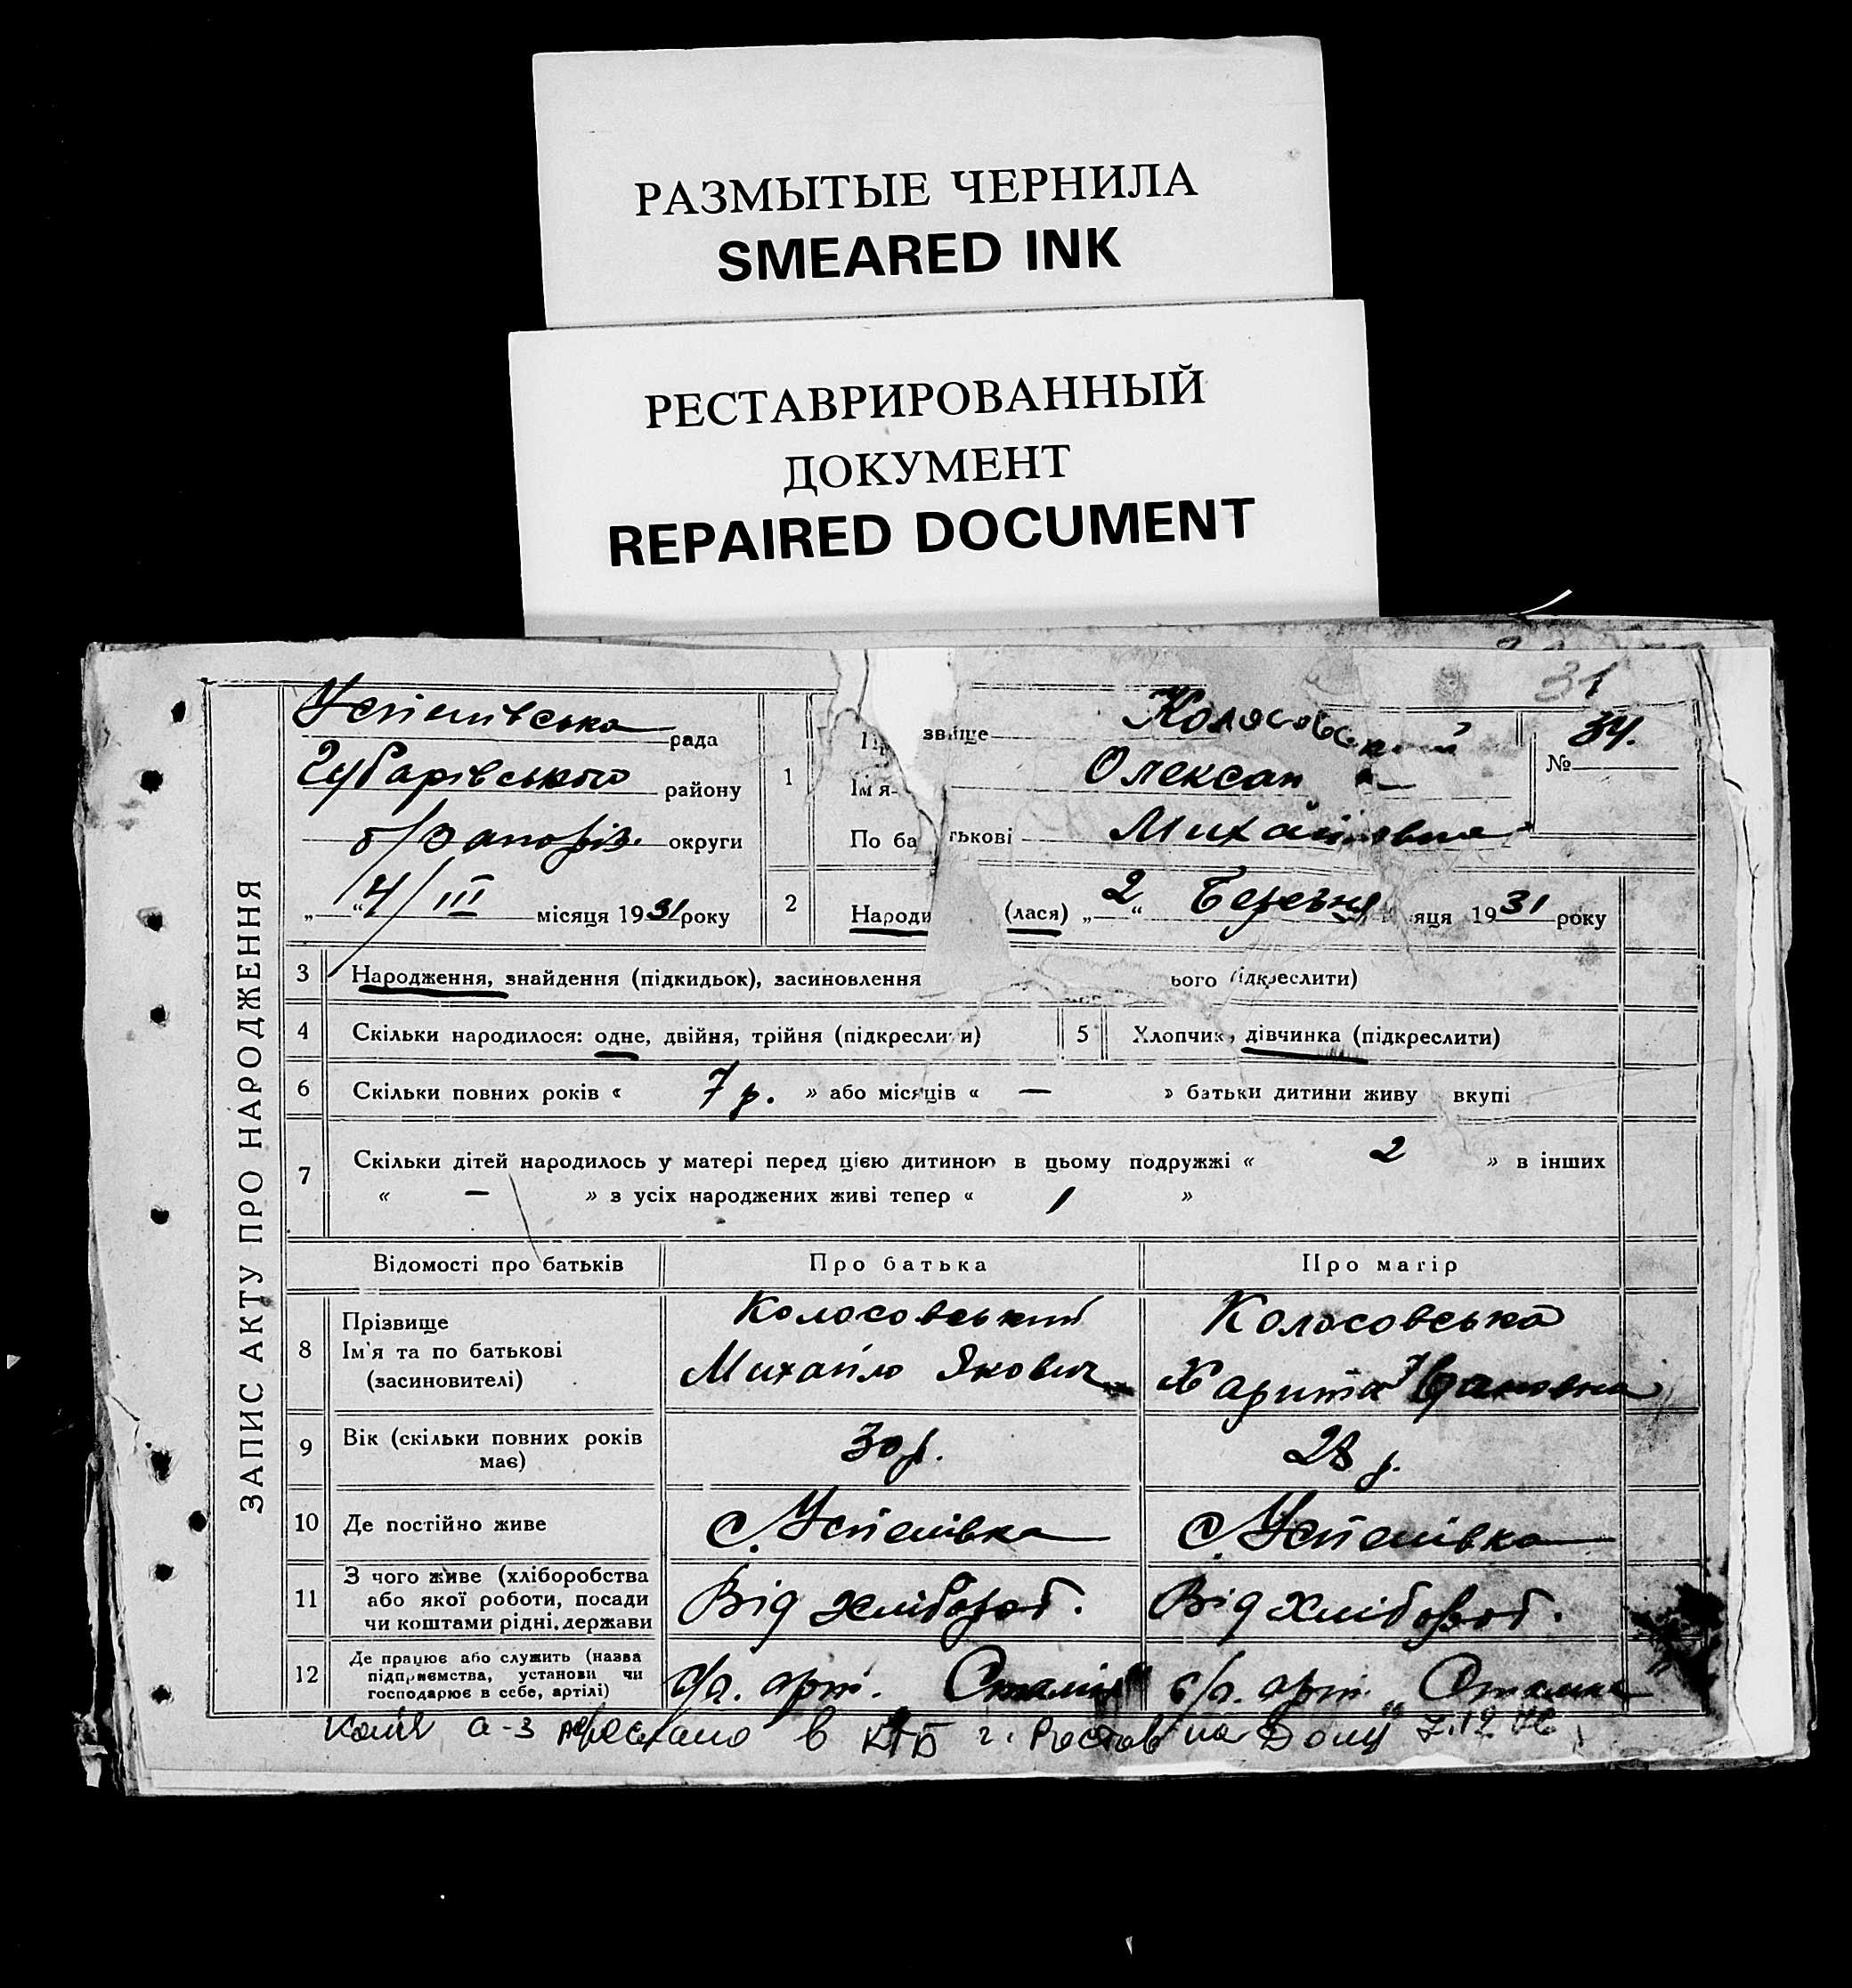 РАЗМЫТЫЕ ЧЕРНИЛА
SMEARED INK
РЕСТАВРИРОВАННЫЙ
ДОКУМЕНТ
REPAIRED DOCUMENT
31
ЗАПИС АКТУ ПРО НАРОДЖЕННЯ
Успенівська рада
Чубарівського району
б/Запоріз. округи
„ “ 4/III місяця 1931 року
1
звище Колосовський
Ім'я Олексан
По ба тькові Михайлівна
№ 34.
2 Народи (лася) „ 2 “ Березня яця 1931 року
3 Народження, знайдення (підкидьок), засиновлення ього підкреслити)
4 Скільки народилося: одне, двійня, трійня (підкреслити)
5 Хлопчик, дівчинка (підкреслити)
6 Скільки повних років « 7 р. » або місяців « — » батьки дитини живу вкупі
7 Скільки дітей народилось у матері перед цією дитиною в цьому подружжі « 2 » в інших
« — » з усіх народжених живі тепер « 1 »
Відомості про батьків Про батька Про матір
8 Прізвище
Ім'я та по батькові
(засиновителі)
Колосовський
Михайло Якович
Колосовська
Харита
9 Вік (скільки повних років має) 30 р. 28 р.
10 Де постійно живе с. Успенівка с. Успенівка
11 З чого живе (хліборобства
або якої роботи, посади
чи коштами рідні, держави
Від хлібороб. Від хлібороб.
12 Де працює або служить (назва
підприємства, установи чи
господарює в себе, артілі)
с/г. арт. Сталіна с/г. арт. „Сталіна"
копия а-з в г. Ростов на Дону